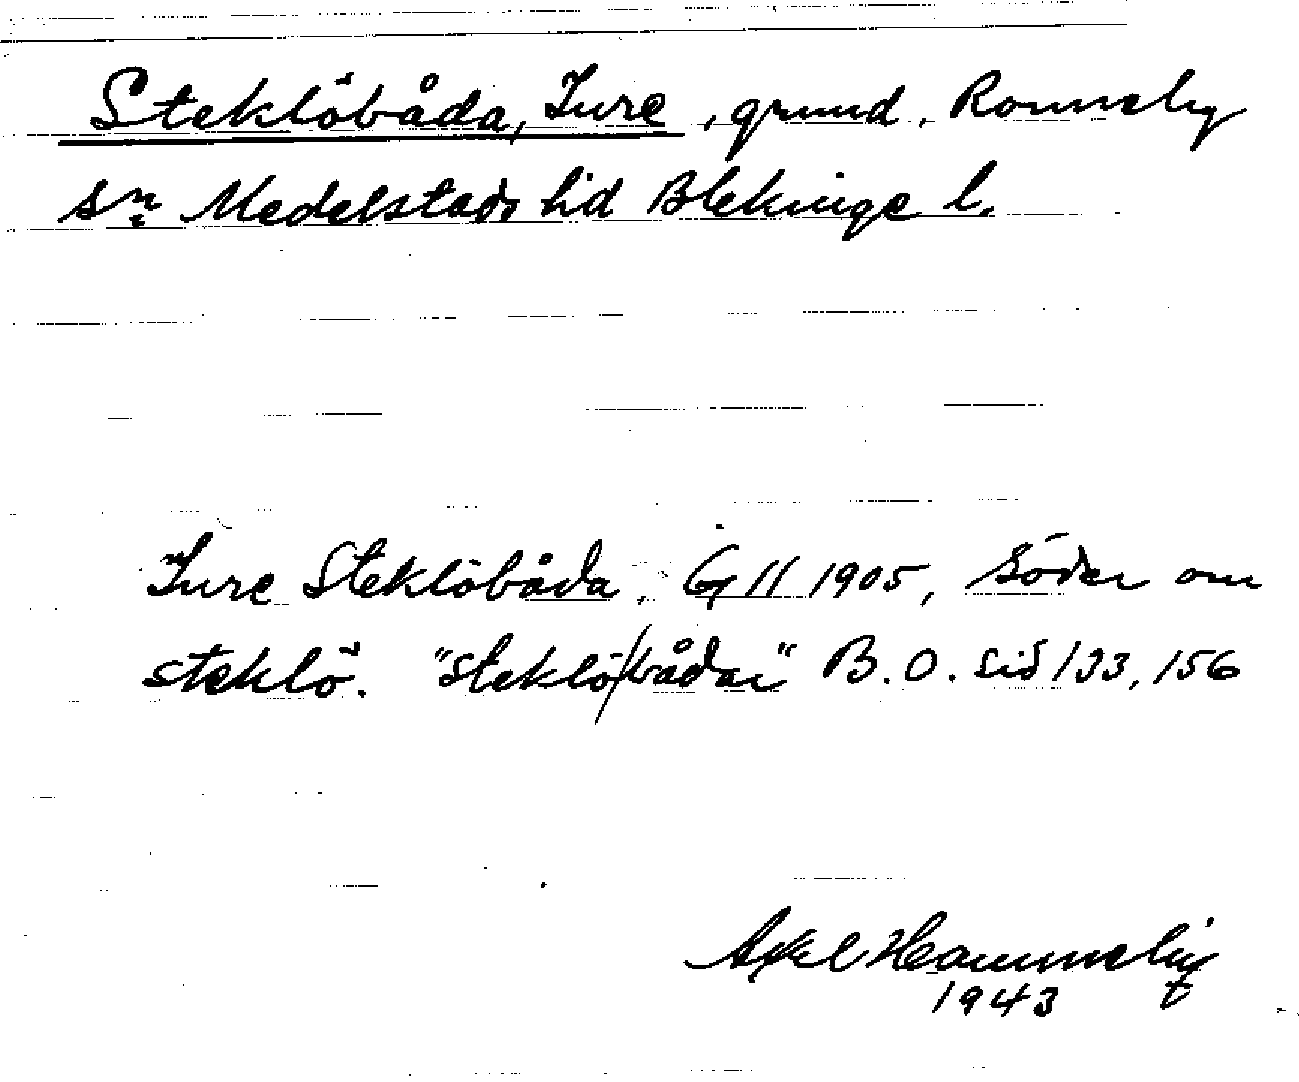 Steklöbåda, Ture, grund, Ronneby
sn Medelstads hd Blekinge l.
Ture Steklöbåda. Gg 11 1905, söder om
steklö. "steklö/bådar" B.O. sid 133, 156
Axel Hammelig
1943